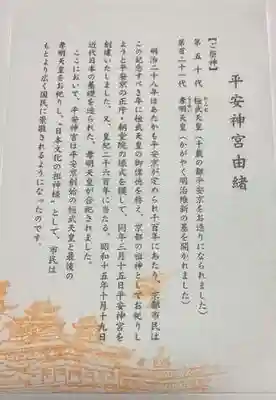 平安神宮由緒
【ご祭神】
第五十代 桓武天皇（千歳の都平安京をお造りになられました）
第百二十一代 孝明天皇（かがやく明治維新の基を開かれました）
明治二十八年はあたかも平安京が定められ千百年にあたり、京都市民は
この記念すべき年に桓武天皇の御偉徳を称え、京都の祖神としてお祀りし
ようと平安京の正庁・朝堂院の様式を模して、同年三月十五日平安神宮を
創建いたしました。又、皇紀二千六百年に当たる、昭和十五年十月十九日
近代日本の基礎を造られた、孝明天皇が合祀されました。
ここにおいて、平安神宮は平安京創始の桓武天皇と最後の
孝明天皇をお祀りし、“日本文化の祖神様”として、市民は
もとより広く国民に崇敬されるようになったのです。